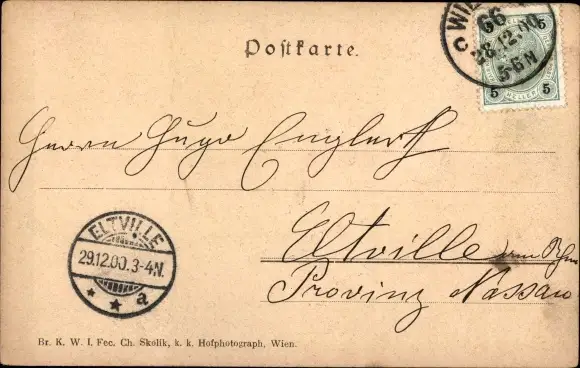 Postkarte.
WIE
66
28.12.00
5-6N
C
5 5
HELLER
5 5
Herrn Hugo Englert
Eltville am Rhein
Provinz Nassau
ELTVILLE
29.12.00.3-4N.
* * a
Br. K. W. I. Fec. Ch. Skolik, k. k. Hofphotograph, Wien.